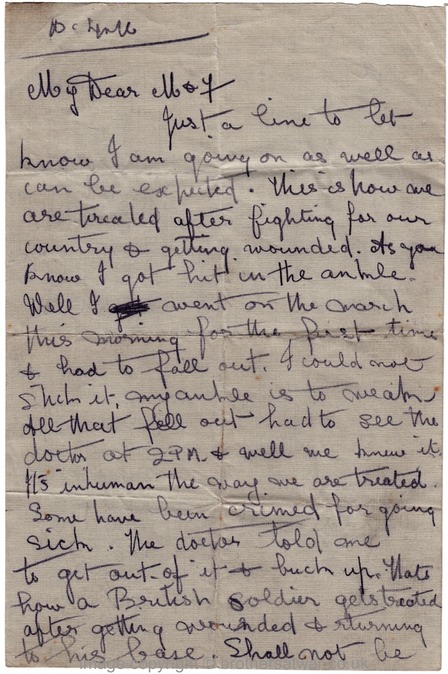 My Dear M & F
Just a line to let
know I am going on as well as
can be expected. This is how we
are treated after fighting for our
country & getting wounded. As you
know I got hit in the ankle.
Well I went on the march
this morning for the first time
& had to fall out. I could not
stick it, my ankle is to weak.
All that fell out had to see the
doctor at 2 PM & well we knew it.
Its inhuman the way we are treated.
Some have been crimed for going
sick. The doctor told me
to get out of it & buck up. Thats
how a British Soldier gets treated
after getting wounded & rturning
to his base. Shall not be